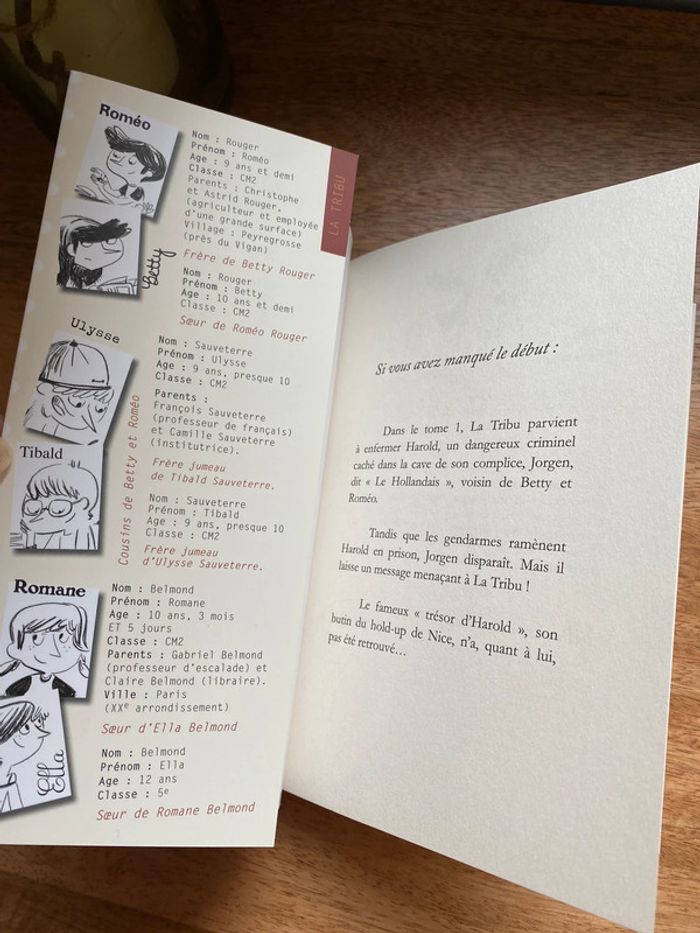 Roméo
Nom : Rouger
Prénom : Roméo
Age : 9 ans et demi
Classe : CM2
Parents : Christophe
et Astrid Rouger.
(agriculteur et employée
d'une grande surface)
Village : Peyregrosse
(près du Vigan)
Frère de Betty Rouger
Betty
Nom : Rouger
Prénom : Betty
Age : 10 ans et demi
Classe : CM2
Sœur de Roméo Rouger
Ulysse
Nom : Sauveterre
Prénom : Ulysse
Age : 9 ans, presque 10
Classe : CM2
Parents :
François Sauveterre
(professeur de français)
et Camille Sauveterre
(institutrice).
Frère jumeau
de Tibald Sauveterre.
Tibald
Nom : Sauveterre
Prénom : Tibald
Age : 9 ans, presque 10
Classe : CM2
Frère jumeau
d'Ulysse Sauveterre.
Cousins de Betty et Roméo
Romane
Nom : Belmond
Prénom : Romane
Age : 10 ans, 3 mois
ET 5 jours
Classe : CM2
Parents : Gabriel Belmond
(professeur d'escalade) et
Claire Belmond (libraire).
Ville : Paris
(XXe arrondissement)
Sœur d'Ella Belmond
Ella
Nom : Belmond
Prénom : Ella
Age : 12 ans
Classe : 5e
Sœur de Romane Belmond
LA TRIBU
Si vous avez manqué le début :
Dans le tome 1, La Tribu parvient
à enfermer Harold, un dangereux criminel
caché dans la cave de son complice, Jorgen,
dit « Le Hollandais », voisin de Betty et
Roméo.
Tandis que les gendarmes ramènent
Harold en prison, Jorgen disparaît. Mais il
laisse un message menaçant à La Tribu !
Le fameux « trésor d'Harold », son
butin du hold-up de Nice, n'a, quant à lui,
pas été retrouvé…